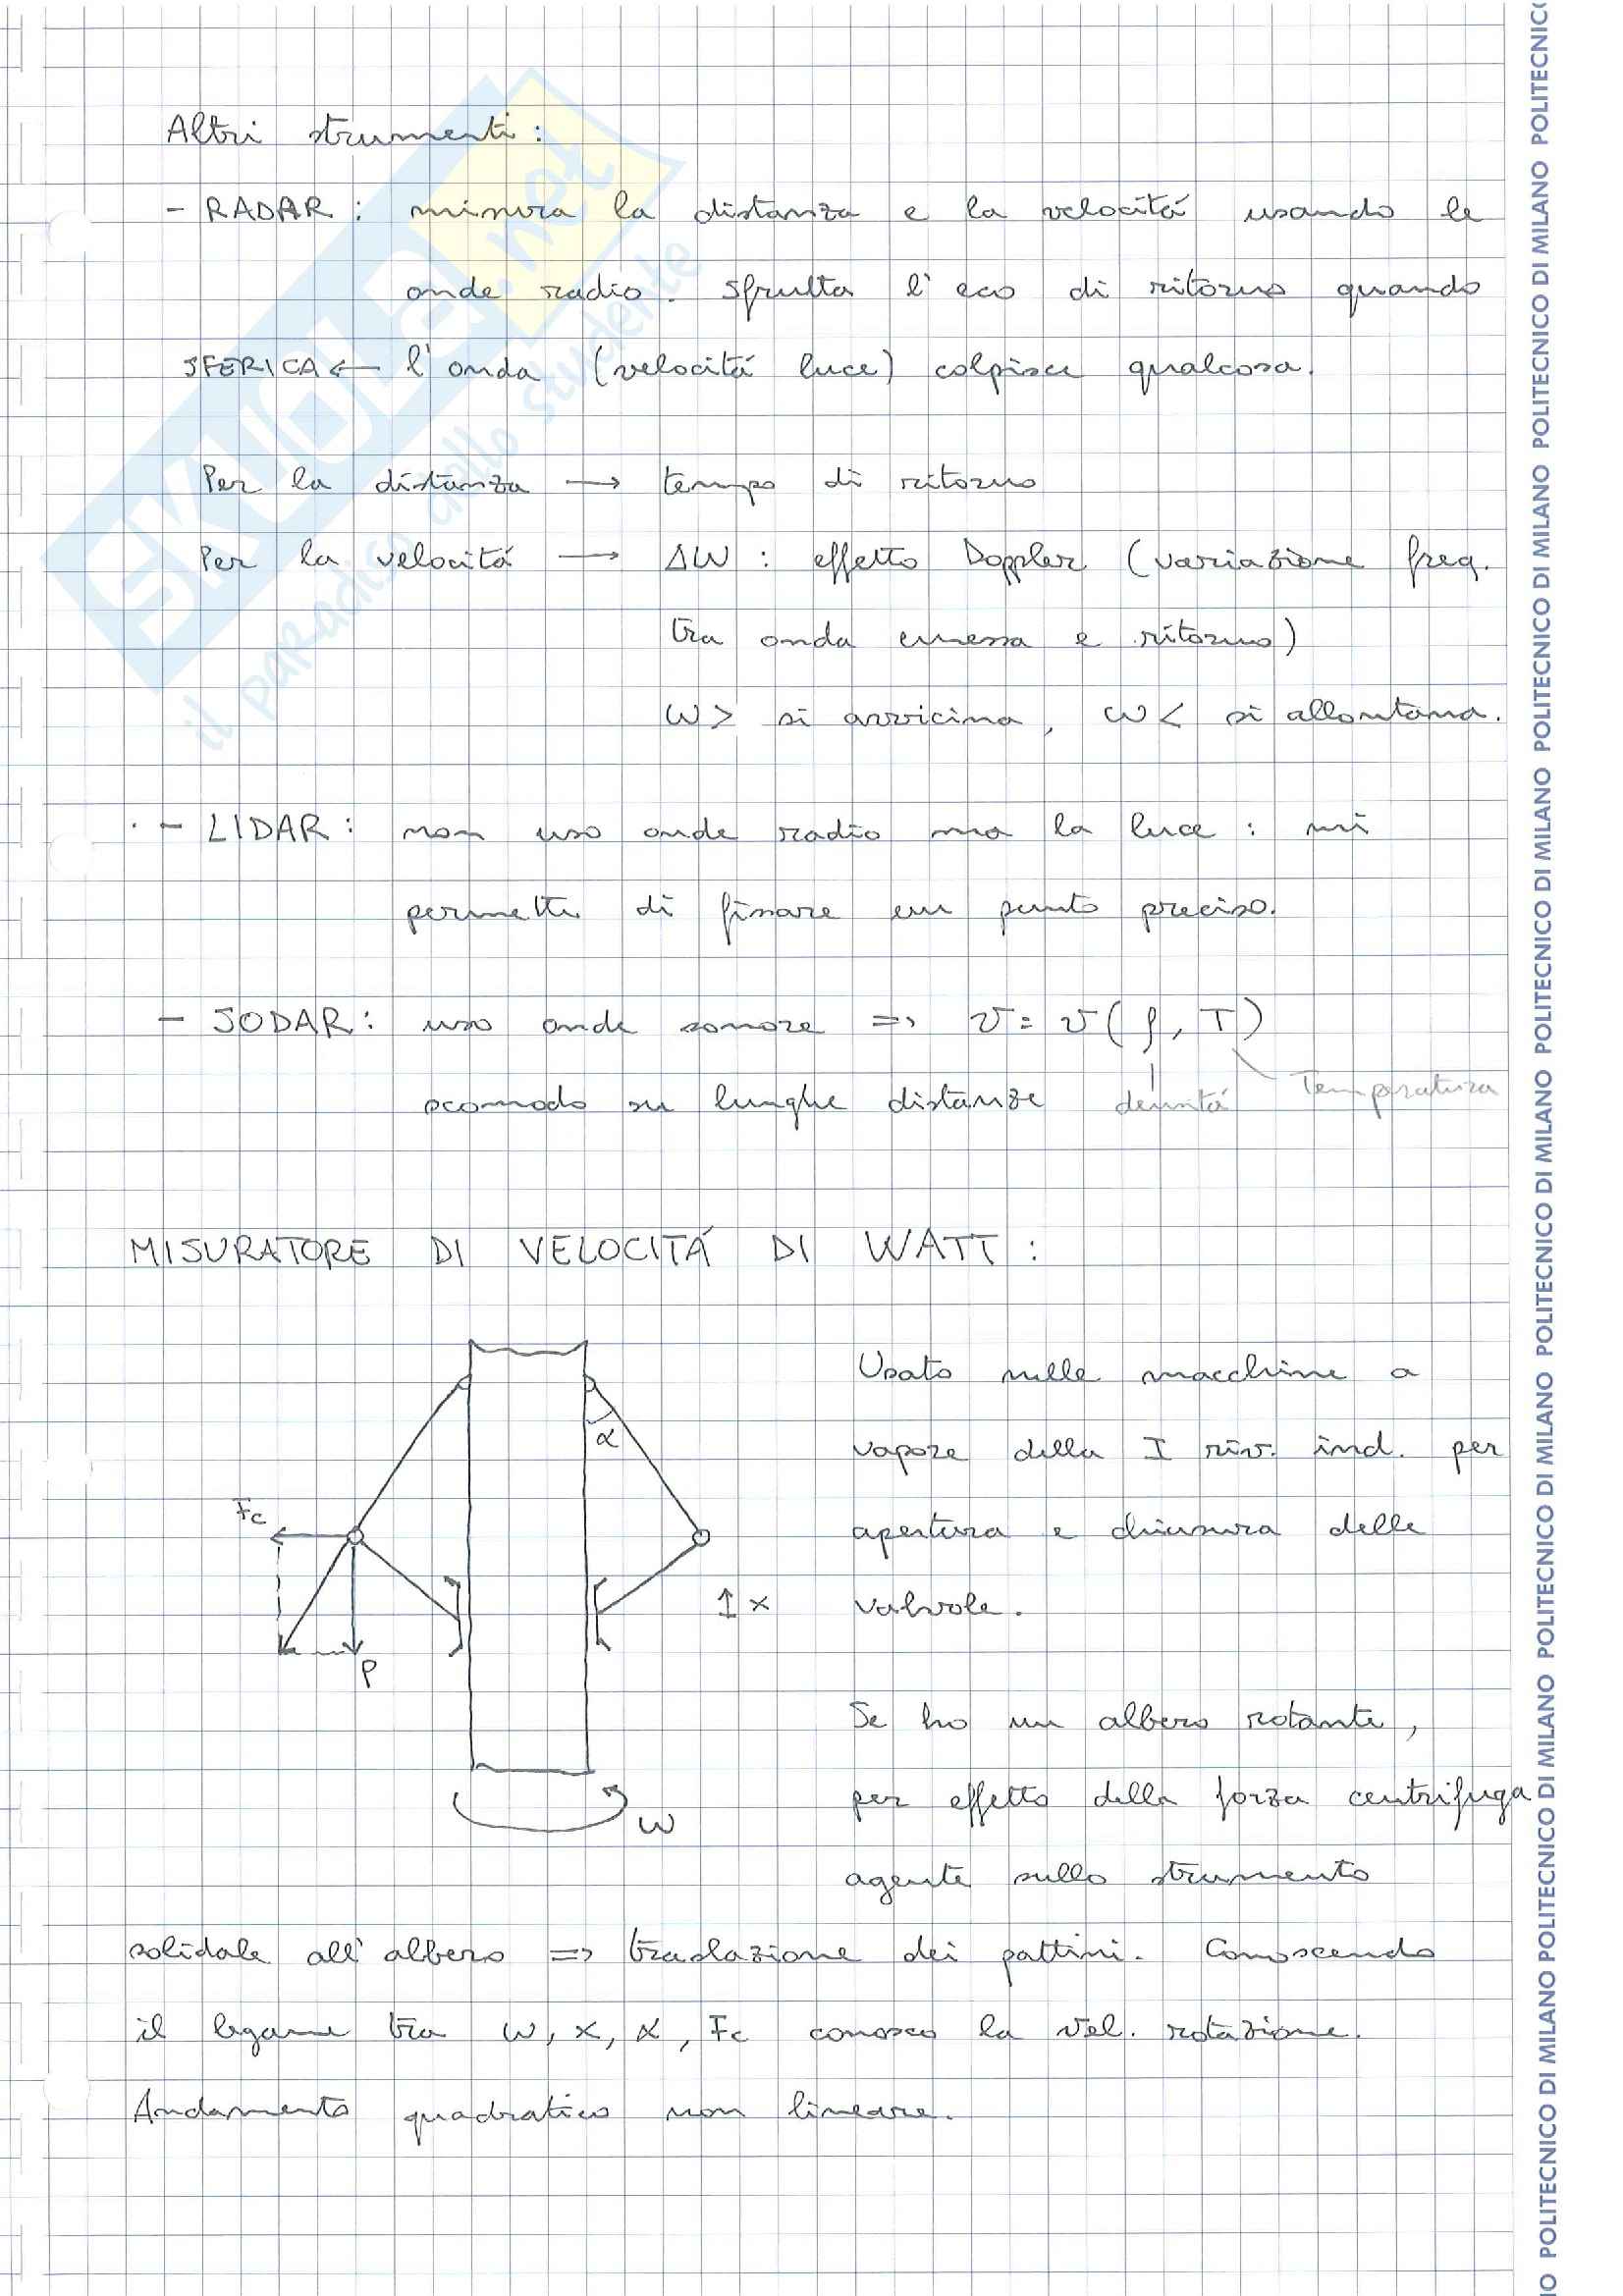 Altri strumenti:
- RADAR: misura la distanza e la velocitá usando le
onde radio. Sfrutta l'eco di ritorno quando
SFERICA ← l'onda (velocitá luce) colpisce qualcosa.
Per la distanza → tempo di ritorno
Per la velocitá → ΔW: effetto Doppler (variazione freq.
tra onda emessa e ritorno)
W> si avvicina, W< si allontana.
- LIDAR: non uso onde radio ma la luce: mi
permette di fissare un punto preciso.
- SODAR: uso onde sonore => v = v(ρ, T)
scomodo su lunghe distanze densitá Temperatura
MISURATORE DI VELOCITÁ DI WATT:
Usato nelle macchine a
α
vapore della I riv. ind. per
Fc
apertura e chiusura delle
↕ x valvole.
P
Se ho un albero rotante,
per effetto della forza centrifuga
W
agente sullo strumento
solidale all'albero => traslazione dei pattini. Conoscendo
il legame tra W, x, α, Fc conosco la vel. rotazione.
Andamento quadratico non lineare.
SKUOLA.net
il paradiso dello studente
POLITECNICO DI MILANO POLITECNICO DI MILANO POLITECNICO DI MILANO POLITECNICO DI MILANO POLITECNICO DI MILANO POLITECNICO DI MILANO POLITECNICO DI MILANO POLITECNICO